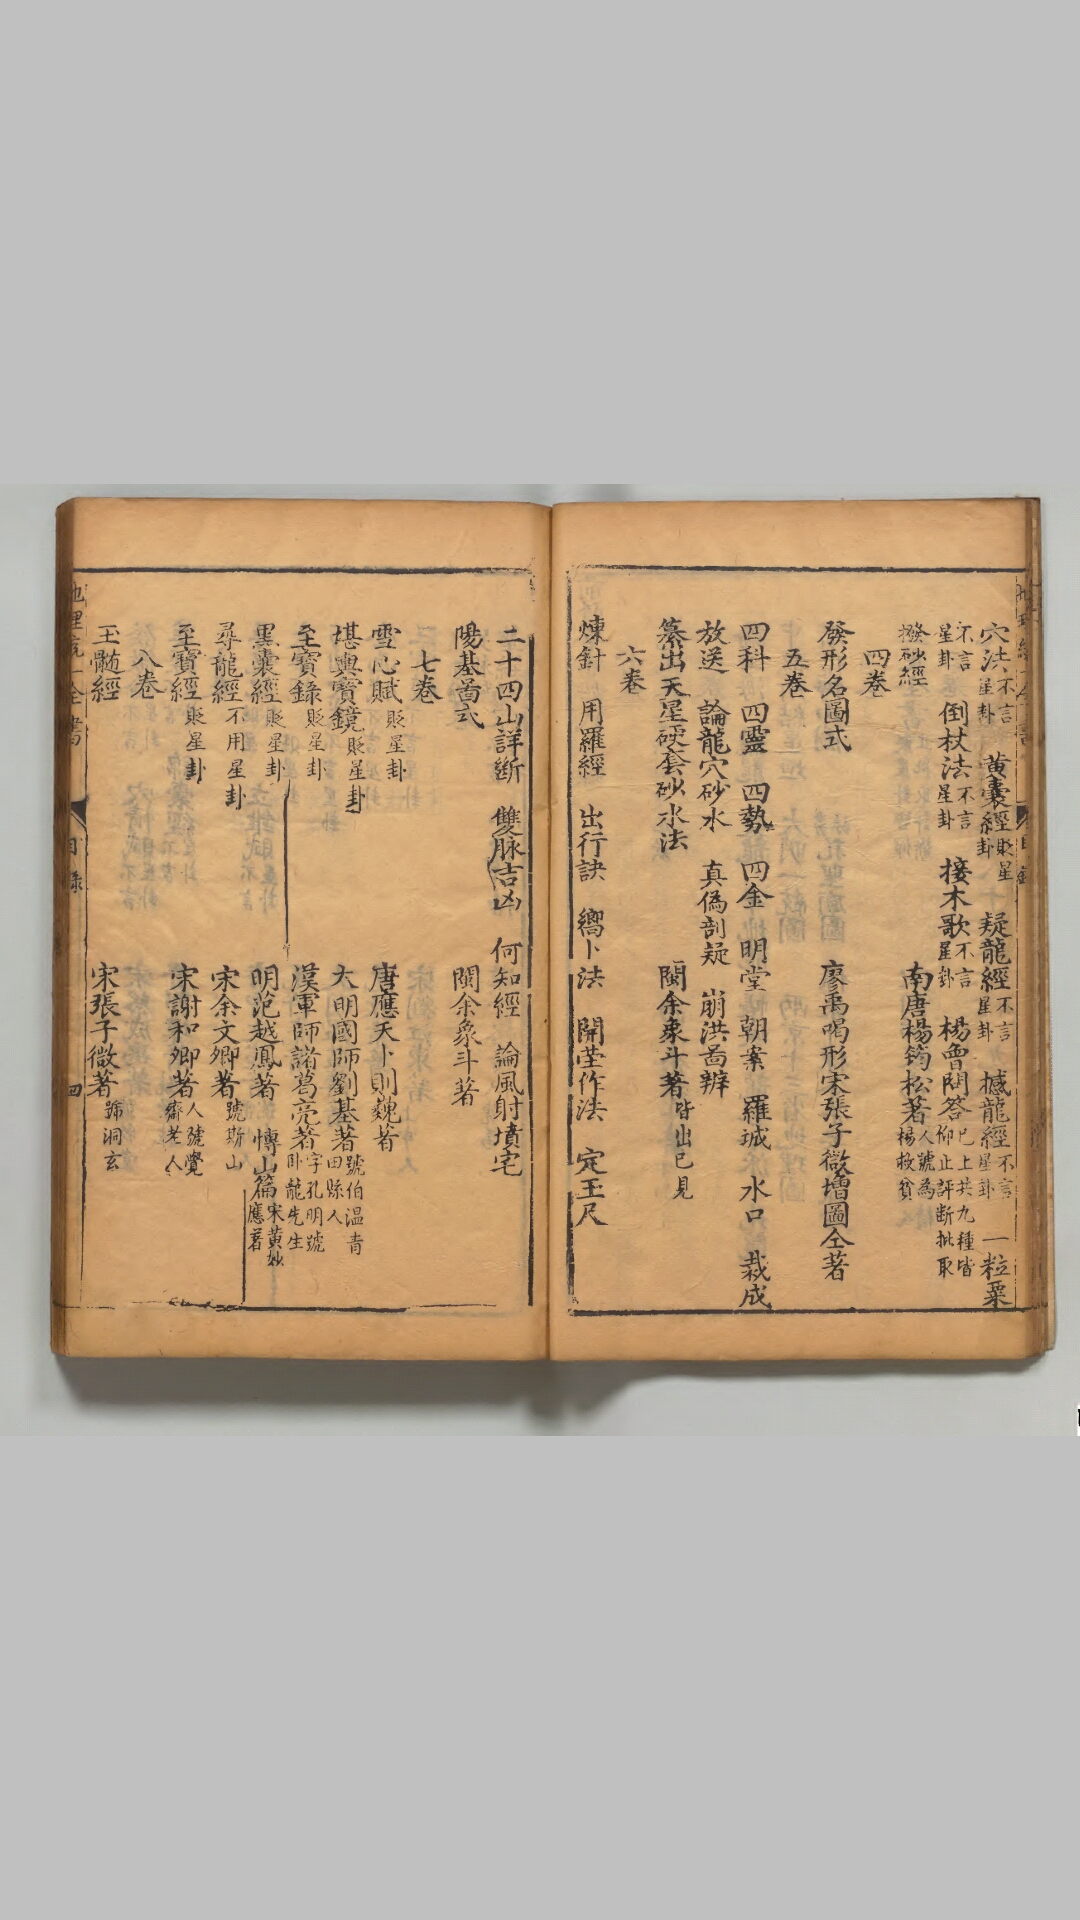 穴法不言星卦 黃囊經貶星卦 疑龍經不言星卦 撼龍經不言星卦 一粒粟
不言星卦 倒杖法不言星卦 接木歌不言星卦 楊曾問答已上共九種皆仰止評斷批取
撥砂經 南唐楊筠松著人號為楊救貧
四卷
發形名圖式 廖禹喝形宋張子微增圖仝著
五卷
四科 四靈 四勢 四金 明堂 朝案 羅城 水口 裁成
放送 論龍穴砂水 真偽剖疑 崩洪啚辨
纂出天星硬套砂水法 閩余象斗著皆出己見
六卷
煉針 用羅經 出行訣 嚮卜法 開塋作法 定玉尺
二十四山詳斷 雙脉吉凶 何知經 論風射墳宅
陽基啚式 閩余象斗著
七卷
雪心賦貶星卦 唐應天卜則巍著
堪輿寶鏡貶星卦 大明國師劉基著號伯溫青田縣人
至寶錄貶星卦 漢軍師諸葛亮著字孔明號臥龍先生
黑囊經貶星卦 明范越鳳著 博山篇宋黃妙應著
尋龍經不用星卦 宋余文卿著號斯山
至寶經貶星卦 宋謝和卿著人號覺齋老人
八卷
玉髓經 宋張子微著號洞玄
地理統一全書
目錄
四